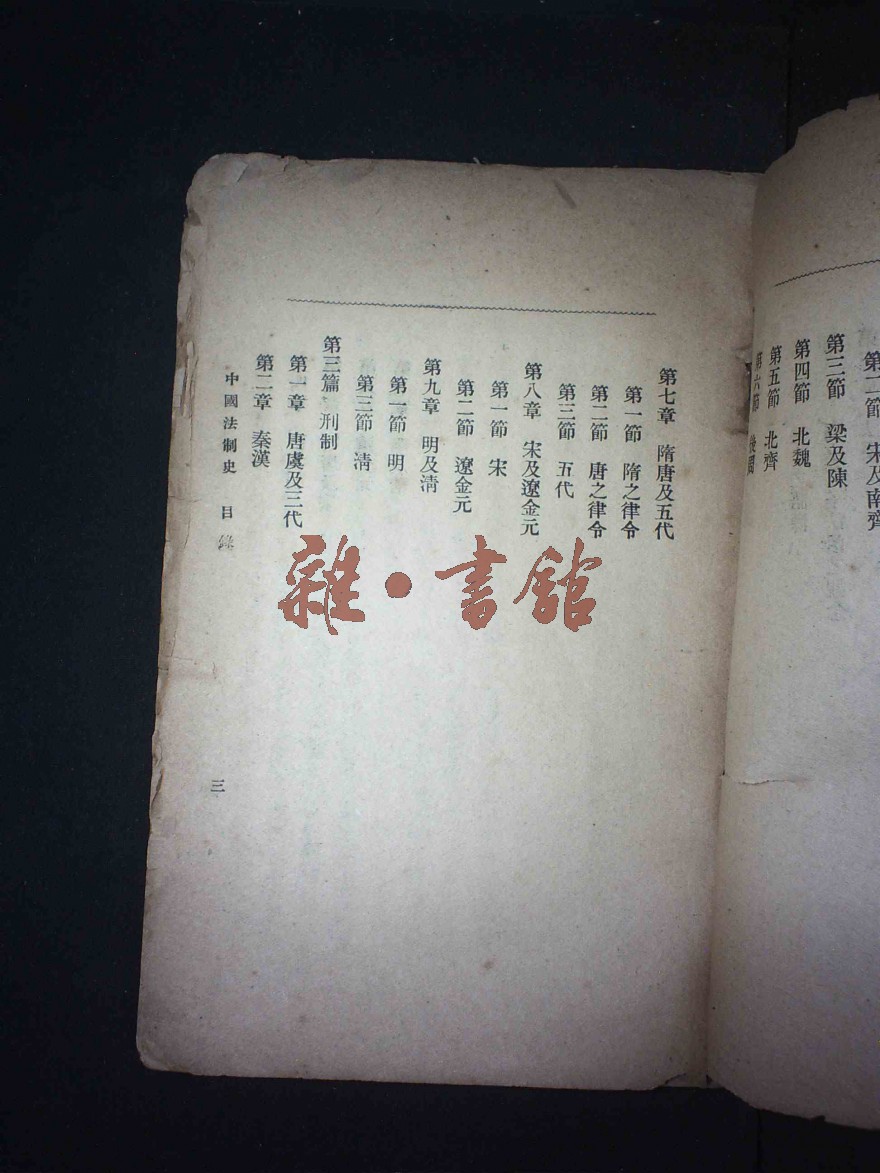 第二節 宋及南齊
第三節 梁及陳
第四節 北魏
第五節 北齊
第六節 後周
第七章 隋唐及五代
第一節 隋之律令
第二節 唐之律令
第三節 五代
第八章 宋及遼金元
第一節 宋
第二節 遼金元
第九章 明及清
第一節 明
第三節 清
第三篇 刑制
第一章 唐虞及三代
第二章 秦漢
中國法制史 目錄
三
雜·書館